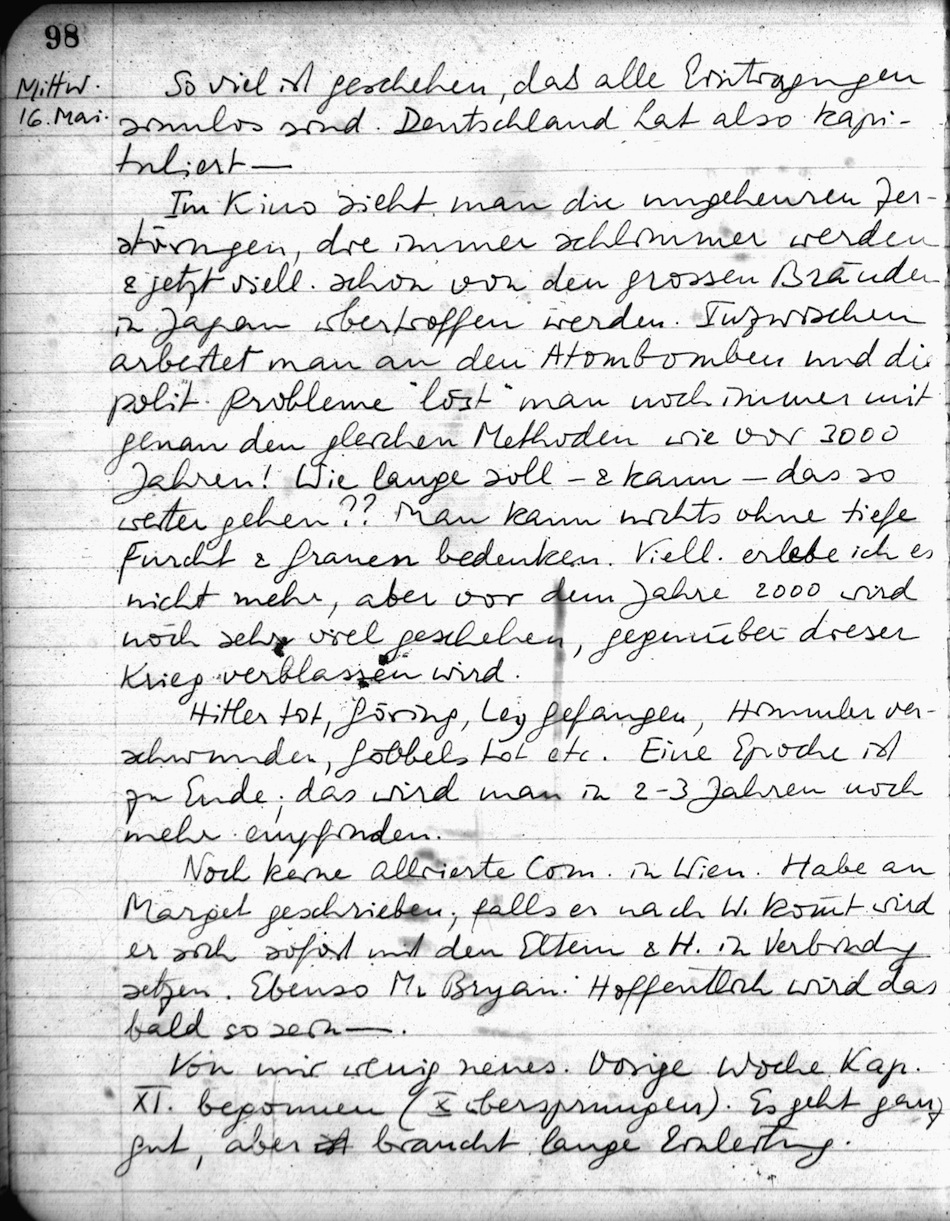 98
Mittw.
16. Mai.
So viel ist geschehen, das alle Eintragungen
sinnlos sind. Deutschland hat also kapi-
tuliert —
Im Kino sieht man die ungeheuren Zer-
störungen, die immer schlimmer werden
& jetzt viell. schon von den grossen Bränden
in Japan übertroffen werden. Inzwischen
arbeitet man an den Atombomben und die
polit. Probleme "löst" man noch immer mit
genau den gleichen Methoden wie vor 3000
Jahren! Wie lange soll – & kann – das so
weiter gehen?? Man kann nichts ohne tiefe
Furcht & Grauen bedenken. Viell. erlebe ich es
nicht mehr, aber vor dem Jahre 2000 wird
noch sehr viel geschehen, gegenüber dieser
Krieg verblassen wird.
Hitler tot, Göring, Ley gefangen, Himmler ver-
schwunden, Göbbels tot etc. Eine Epoche ist
zu Ende; das wird man in 2-3 Jahren noch
mehr empfinden.
Noch keine alliierte Com. in Wien. Habe an
Marget geschrieben; falls er nach W. kommt wird
er sich sofort mit den Eltern & H. in Verbindg
setzen. Ebenso Mr Bryan. Hoffentlich wird das
bald so sein —.
Von mir wenig neues. Vorige Woche Kap.
XI. begonnen (X übersprungen). Es geht ganz
gut, aber ist braucht lange Einleitung.